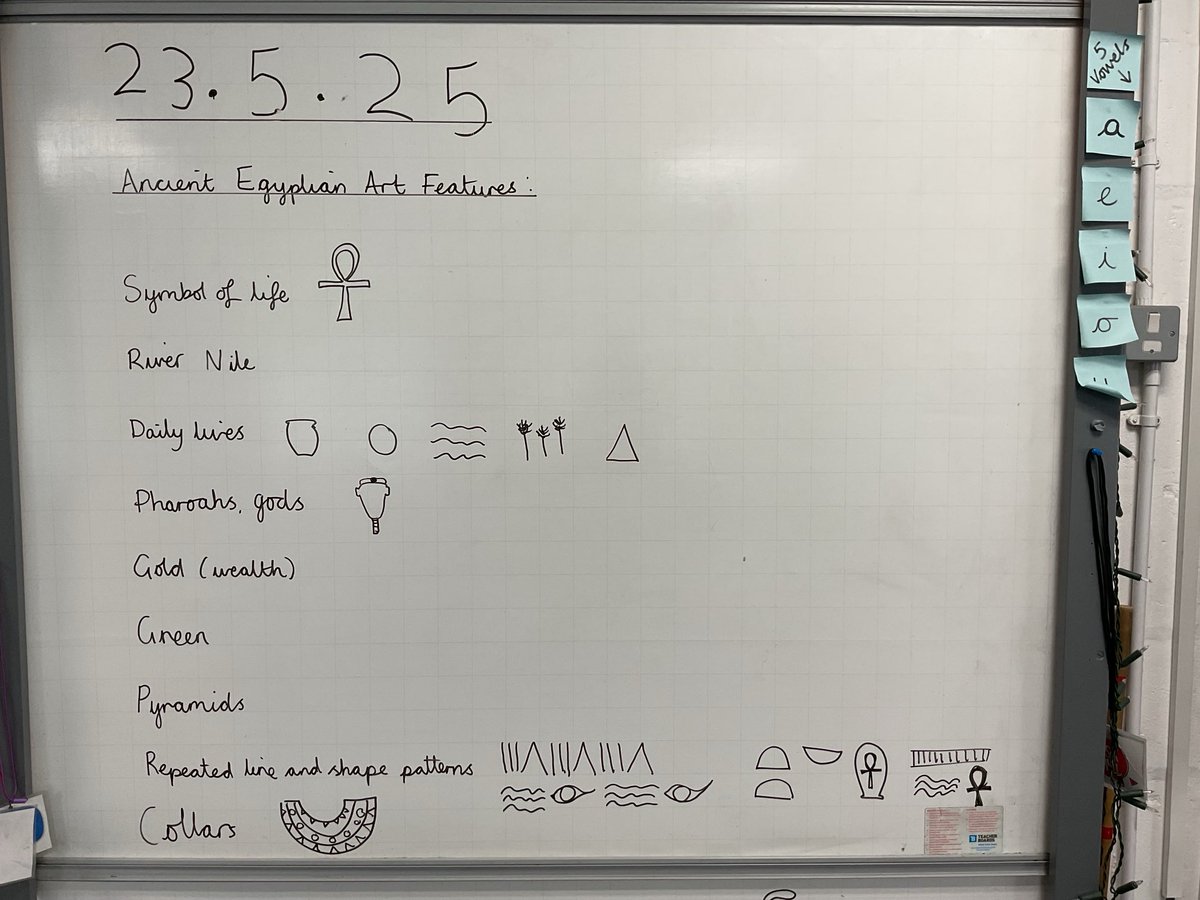 23.5.25
Ancient Egyptian Art Features:
Symbol of life
River Nile
Daily lives
Pharoahs, gods
Gold (wealth)
Green
Pyramids
Repeated line and shape patterns
Collars
5
Vowels
↓
a
e
i
o
TEACHER
BOARDS